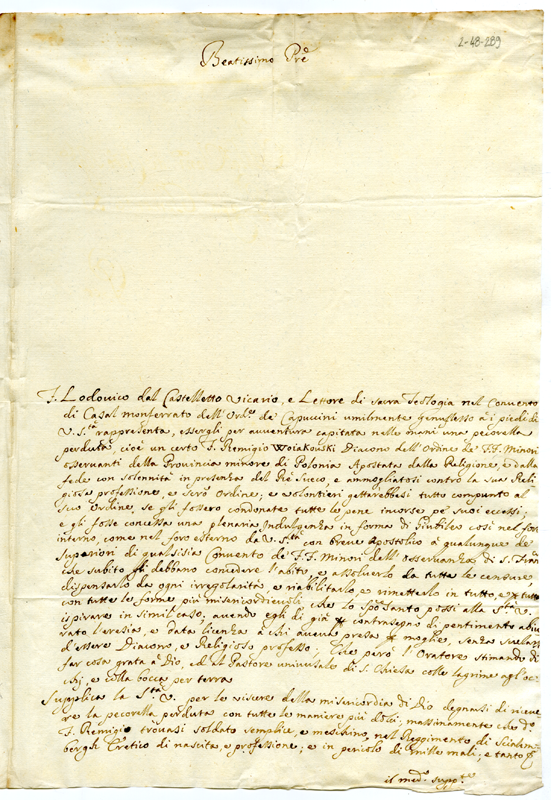 2-48-289
Beatissimo Pre
F. Lodovico dal Castelletto Vicario, e Lettore di sacra Teologia nel Convento
di Casal monferrato dell'Ord.e de Capuccini umilmente genuflesso a i piedi di
V. S.tà rappresenta, essergli per avventura capitata nelle mani una pecorella
perduta, cioè un certo F. Remigio Woiakouski Diacono dell'Ordine de' F.F. Minori
osservanti della Provincia minore di Polonia Apostata dalla Religione, e dalla
fede con solennità in presenza del Rè Sueco, e ammogliatosi contro la sua Reli-
giosa professione, e Sero Ordine; e volontieri gettarebbesi tutto compunto al
suo Ordine, se gli fossero condonate tutte le pene incorse pe' suoi eccessi;
e gli fosse concessa una plenaria Indulgenza in forma di Giubileo così nel foro
interno, come nel foro esterno da V. S.tà con breve Apostolico a qualunque de
Superiori di qualsisia Convento de F.F. Minori dell'osservanza di S. Fran.
che subito debbano concedere l'abito, e assolverlo da tutte le censure
dispensarlo da ogni irregolarità, e riabilitarlo e rimetterlo in tutto, e tutto
con tutte le forme più misericordievoli che lo Spo Santo possi alla S.tà V.
ispirare in simil caso; avendo egli di già contrasegno di pentimento abiu-
rato l'eresia, e data licenza a chi aveva presa moglie, senza svelarsi
d'essere Diacono, e Religioso professo; che però l'Oratore stimando di
far cosa grata a Dio, ed al Pastore universale di S. Chiesa colle lagrime agl'oc-
chj, e colla bocca per terra
Supplica la S.tà V. per le viscere della misericordia di Dio degnarsi di riceve-
re la pecorella perduta con tutte le maniere più dolci, massimamente che d.o
F. Remigio trovasi soldato semplice, e meschino, nel Reggimento di
bergh Eretico di nascita, e professione; e in pericolo di mille mali; e tanto
il med.o supp.te